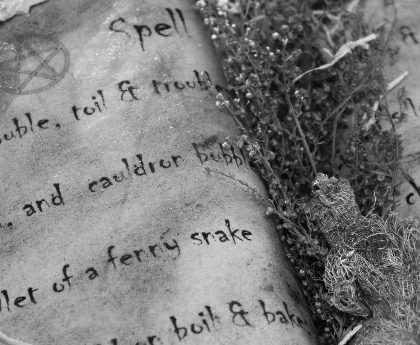 Spell
ouble, toil & troubl
, and cauldron bubbl
llet of a fenny snake
boil & bake